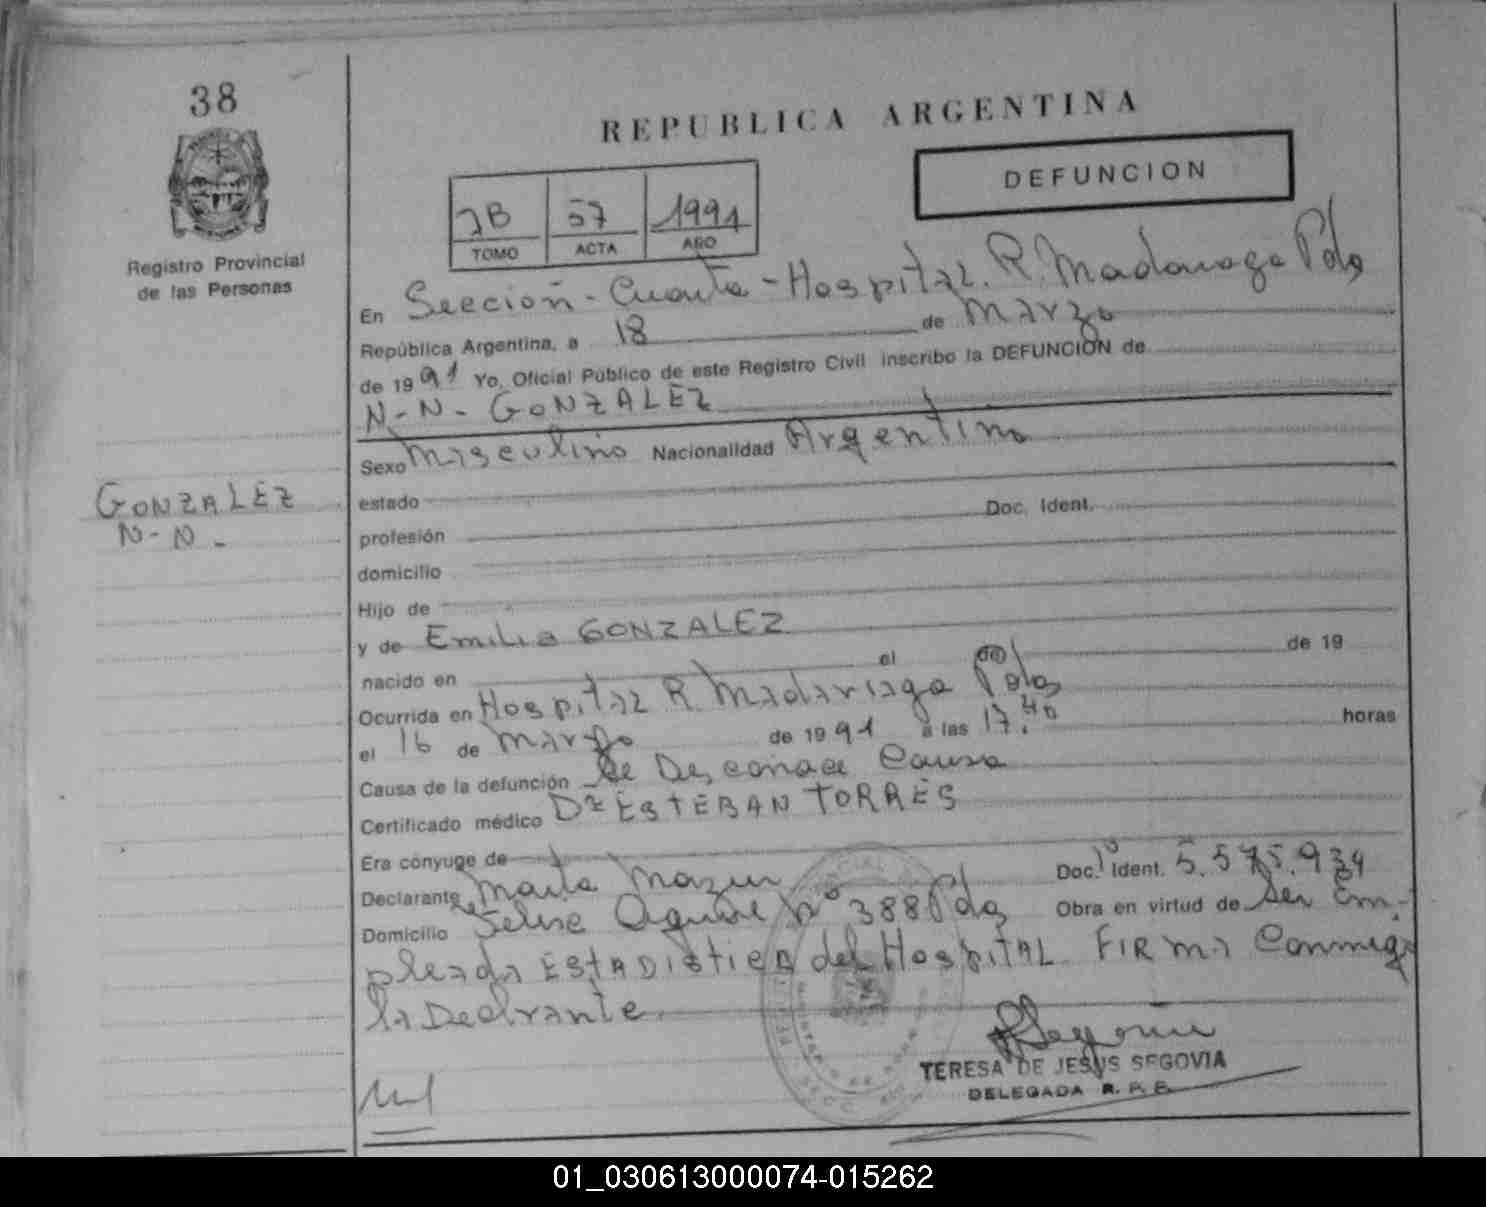 38
REPUBLICA ARGENTINA
DEFUNCION
57 1991
TOMO ACTA AÑO
Registro Provincial
de las Personas
En Sección - Cuarta - Hospital. R. Madariaga Pdas
República Argentina, a 18 de Marzo
de 1991 Yo, Oficial Público de este Registro Civil inscribo la DEFUNCIÓN de
N-N- GONZALEZ
Sexo Masculino Nacionalidad Argentino
GONZALEZ
N-N-
estado
Doc. Ident.
profesión
domicilio
Hijo de
y de Emilia GONZALEZ
nacido en el de de 19
Ocurrida en Hospital R. Madariaga Pdas
el 16 de Marzo de 1991 a las 17.40 horas
Causa de la defunción Se Desconoce Causa
Certificado médico Dr ESTEBAN TORRES
Era cónyuge de
Declarante Marta Doc. Ident. 5.575.934
Domicilio Felix Aguirre Nº 388 Pdas Obra en virtud de Ser Em-
pleada ESTADISTICA del Hospital FIRMA Conmigo
la Declrante.
TERESA DE JESUS SEGOVIA
DELEGADA R. P. P.
01_030613000074-015262